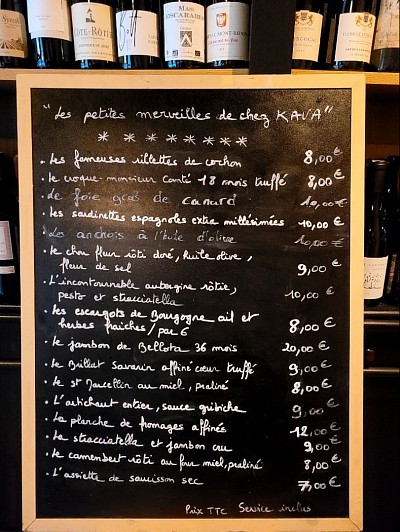 CÔTE-RÔTIE
MAS
LASCARIS
"Les petites merveilles de chez KAVA"
* * * * * * *
. Les fameuses rillettes de cochon 8,00€
. Le croque-monsieur Comté 18 mois truffé 8,00€
. Le foie gras de canard 10,00€
. Les sardinettes espagnoles extra millésimées 10,00€
. Les anchois à l'huile d'olive 10,00€
. Le chou fleur rôti doré, huile olive,
fleur de sel 9,00€
. L'incontournable aubergine rôtie,
pesto et stracciatella 10,00€
. Les escargots de Bourgogne ail et
herbes fraîches / par 6 8,00€
. Le jambon de Bellota 36 mois 20,00€
. Le Brillat Savarin affiné cœur truffé 9,00€
. Le St Marcellin au miel, praliné 8,00€
. L'artichaut entier, sauce gribiche 9,00€
. La planche de fromages affinés 12,00€
. La stracciatella et jambon cru 9,00€
. Le camembert rôti au four miel, praliné 8,00€
. L'assiette de saucisson sec 7,00€
Prix TTC Service inclus